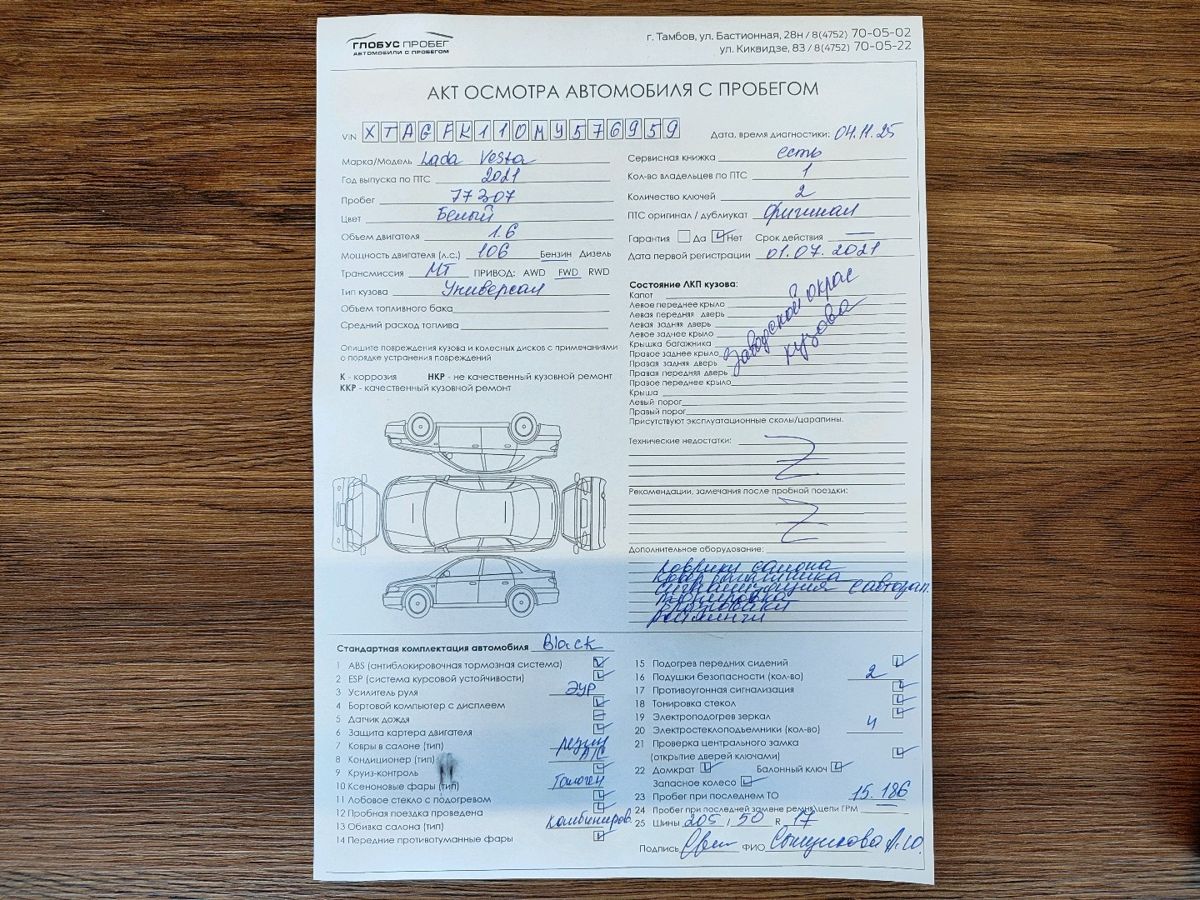 ГЛОБУС ПРОБЕГ
АВТОМОБИЛИ С ПРОБЕГОМ
г. Тамбов, ул. Бастионная, 28н / 8(4752) 70-05-02
ул. Киквидзе, 83 / 8(4752) 70-05-22
АКТ ОСМОТРА АВТОМОБИЛЯ С ПРОБЕГОМ
VIN XTAGFK110MY576959
Марка/Модель Lada Vesta
Год выпуска по ПТС 2021
Пробег 77307
Цвет Белый
Объем двигателя 1.6
Мощность двигателя (л.с.) 106 Бензин Дизель
Трансмиссия МТ ПРИВОД: AWD FWD RWD
Тип кузова Универсал
Объем топливного бака
Средний расход топлива
Опишите повреждения кузова и колесных дисков с примечаниями
о порядке устранения повреждений
К - коррозия НКР - не качественный кузовной ремонт
ККР - качественный кузовной ремонт
Дата, время диагностики: 04.11.25
Сервисная книжка есть
Кол-во владельцев по ПТС 1
Количество ключей 2
ПТС оригинал / дубликат Оригинал
Гарантия Да Нет Срок действия —
Дата первой регистрации 01.07.2021
Состояние ЛКП кузова:
Капот
Левое переднее крыло
Левая передняя дверь
Левая задняя дверь
Левое заднее крыло
Крышка багажника
Правое заднее крыло
Правая задняя дверь
Правая передняя дверь
Правое переднее крыло
Крыша
Левый порог
Правый порог
Заводской окрас
кузова
Присутствуют эксплуатационные сколы/царапины.
Технические недостатки:
Рекомендации, замечания после пробной поездки:
Дополнительное оборудование:
коврики салона
ковер багажника
сигнализация с автозап.
тонировка
Стандартная комплектация автомобиля Black
1 ABS (антиблокировочная тормозная система)
2 ESP (система курсовой устойчивости)
3 Усилитель руля ЭУР
4 Бортовой компьютер с дисплеем
5 Датчик дождя
6 Защита картера двигателя
7 Ковры в салоне (тип) резин
8 Кондиционер (тип) A/C
9 Круиз-контроль
10 Ксеноновые фары (тип) Галоген
11 Лобовое стекло с подогревом
12 Пробная поездка проведена
13 Обивка салона (тип) комбиниров.
14 Передние противотуманные фары
15 Подогрев передних сидений
16 Подушки безопасности (кол-во) 2
17 Противоугонная сигнализация
18 Тонировка стекол
19 Электроподогрев зеркал
20 Электростеклоподъемники (кол-во) 4
21 Проверка центрального замка
(открытие дверей ключами)
22 Домкрат Балонный ключ
Запасное колесо
23 Пробег при последнем ТО 15.186
24 Пробег при последней замене ремня/цепи ГРМ —
25 Шины 205 / 50 R 17
Подпись ФИО